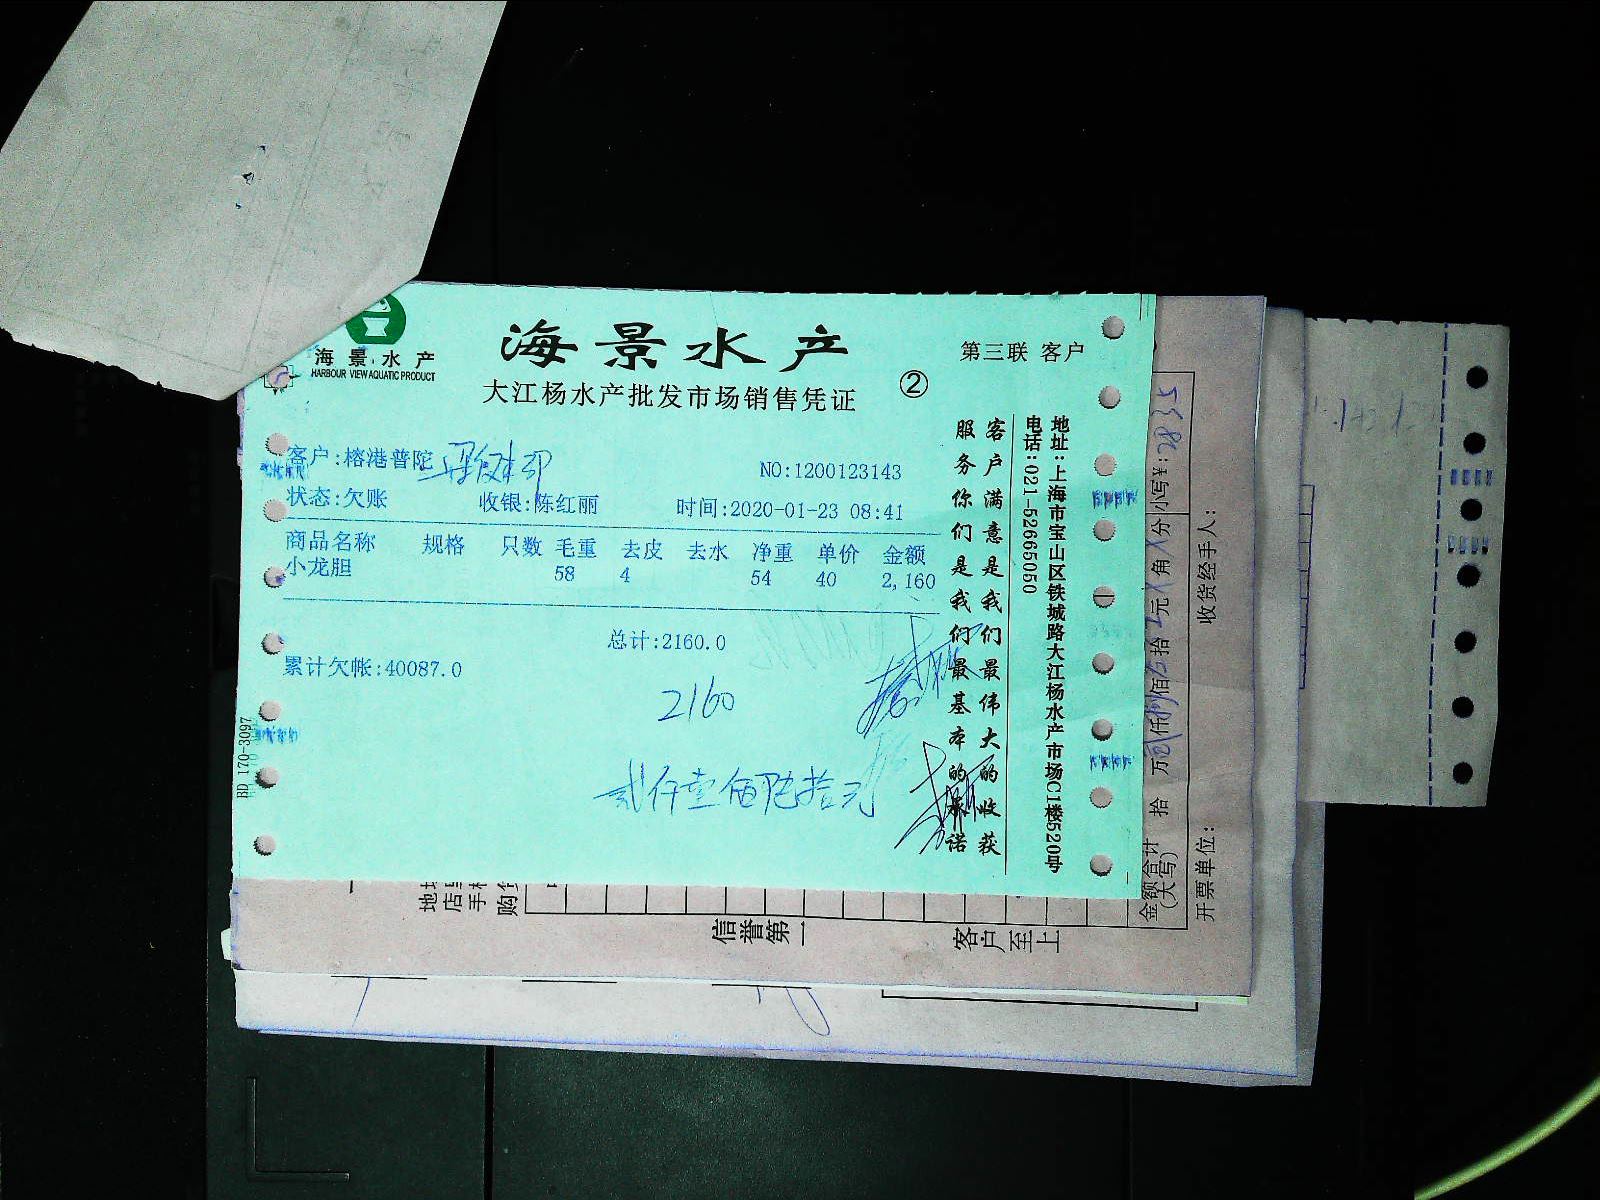 海景水产
HARBOUR VIEW AQUATIC PRODUCT
海景水产
大江杨水产批发市场销售凭证
②
第三联 客户
客户:榕港普陀
NO:1200123143
状态:欠账 收银:陈红丽 时间:2020-01-23 08:41
商品名称 规格 只数 毛重 去皮 去水 净重 单价 金额
小龙胆 58 4 54 40 2,160
总计:2160.0
累计欠帐:40087.0
2160
贰仟壹佰陆拾元
BD 170-3097
客户满意是我们最伟大的收获
服务你们是我们最基本的承诺
地址:上海市宝山区铁城路大江杨水产市场C1楼520号
电话:021-52665050
小写¥:2835
金额合计
(大写)
拾 万 仟 佰 拾 元 角 分
收货经手人:
开票单位:
信誉第一
客户至上